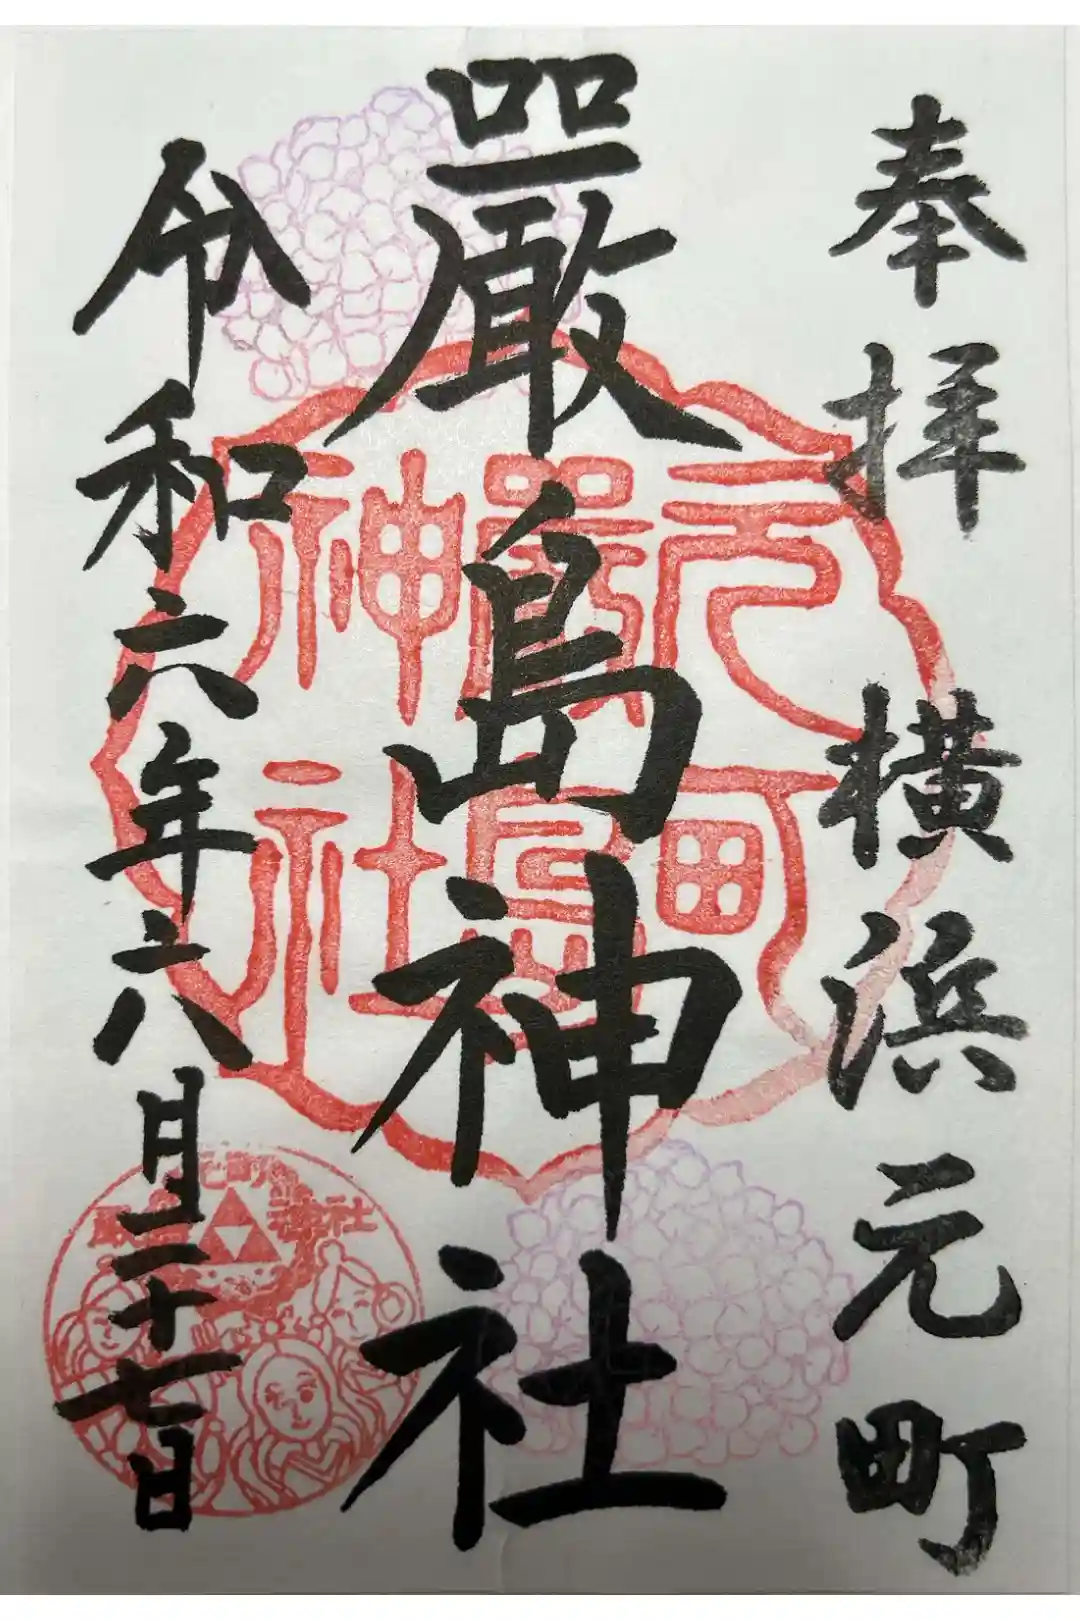 奉拝 横浜元町
嚴島神社
令和六年六月二十七日
元町
嚴島
神社
元町
神社